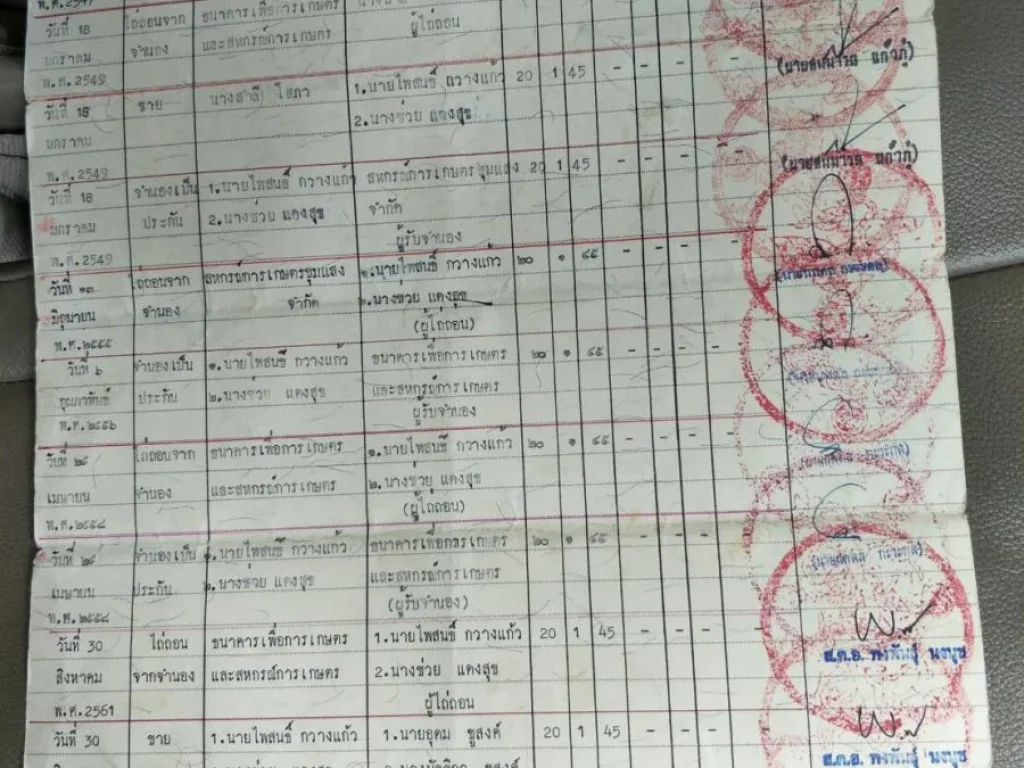 พ.ศ.2547
วันที่ 18 ไถ่ถอนจาก ธนาคารเพื่อการเกษตร
มกราคม จำนอง และสหกรณ์การเกษตร ผู้ไถ่ถอน
พ.ศ.2549
วันที่ 18 ขาย นางสำลี โสภา 1.นายไพสนธิ์ กวางแก้ว 20 1 45 - - - -
มกราคม 2.นางช่วย แดงสุข
พ.ศ.2549
วันที่ 18 จำนองเป็น 1.นายไพสนธิ์ กวางแก้ว สหกรณ์การเกษตรชุมแสง 20 1 45 - - - -
มกราคม ประกัน 2.นางช่วย แดงสุข จำกัด
ผู้รับจำนอง
พ.ศ.2549
วันที่ ๑๓ ไถ่ถอนจาก สหกรณ์การเกษตรชุมแสง ๑.นายไพสนธิ์ กวางแก้ว ๒๐ ๑ ๔๕ - - - -
มิถุนายน จำนอง จำกัด ๒.นางช่วย แดงสุข
(ผู้ไถ่ถอน)
พ.ศ.๒๕๕๕
วันที่ ๖ จำนองเป็น ๑.นายไพสนธิ์ กวางแก้ว ธนาคารเพื่อการเกษตร ๒๐ ๑ ๔๕ - - - -
กุมภาพันธ์ ประกัน ๒.นางช่วย แดงสุข และสหกรณ์การเกษตร
ผู้รับจำนอง
พ.ศ.๒๕๕๖
วันที่ ๒๘ ไถ่ถอนจาก ธนาคารเพื่อการเกษตร ๑.นายไพสนธิ์ กวางแก้ว ๒๐ ๑ ๔๕ - - - -
เมษายน จำนอง และสหกรณ์การเกษตร ๒.นางช่วย แดงสุข
(ผู้ไถ่ถอน)
พ.ศ.๒๕๕๘
วันที่ ๒๘ จำนองเป็น ๑.นายไพสนธิ์ กวางแก้ว ธนาคารเพื่อการเกษตร ๒๐ ๑ ๔๕ - - - -
เมษายน ประกัน ๒.นางช่วย แดงสุข และสหกรณ์การเกษตร
(ผู้รับจำนอง)
พ.ศ.๒๕๕๘
วันที่ 30 ไถ่ถอน ธนาคารเพื่อการเกษตร 1.นายไพสนธิ์ กวางแก้ว 20 1 45 - - - -
สิงหาคม จากจำนอง และสหกรณ์การเกษตร 2.นางช่วย แดงสุข ส.ต.อ. พงพันธุ์ นงนุช
พ.ศ.2561 ผู้ไถ่ถอน
วันที่ 30 ขาย 1.นายไพสนธิ์ กวางแก้ว 1.นายอุดม ชูสงค์ 20 1 45 - - - -
ส.ต.อ. พงพันธุ์ นงนุช